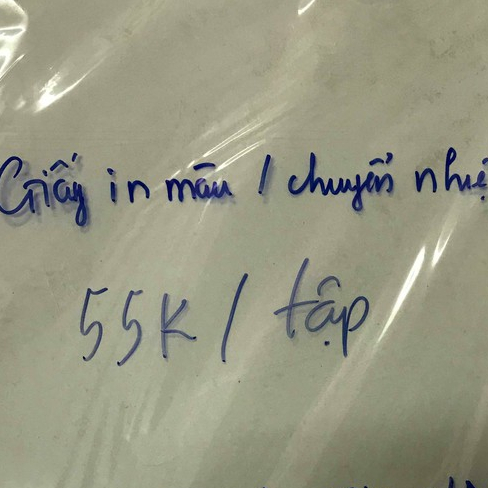 Giấy in màu / chuyển nhiệ
55K / tập